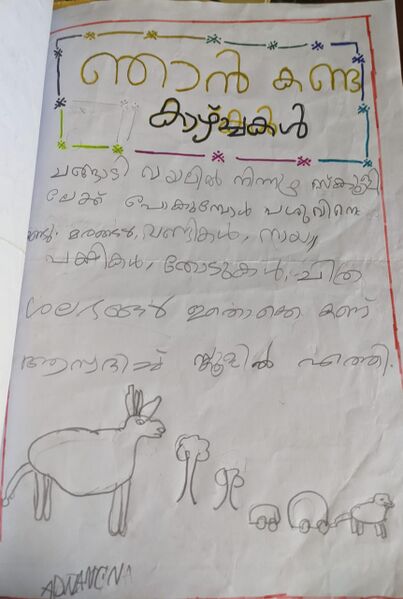 ഞാൻ കണ്ട
കാഴ്ച്ചകൾ
ചങ്ങാടി വയലിൽ നിന്നും സ്കൂളി
ലേക്ക് പോകുമ്പോൾ പശുവിനെ
കണ്ടു. മരങ്ങൾ, വണ്ടികൾ, നായ,
പക്കികൾ, തോടുകൾ, ചിത്ര
ശലഭങ്ങൾ ഇതൊക്കെ കണ്ട്
ആസ്വദിച്ച് സ്കൂളിൽ എത്തി.